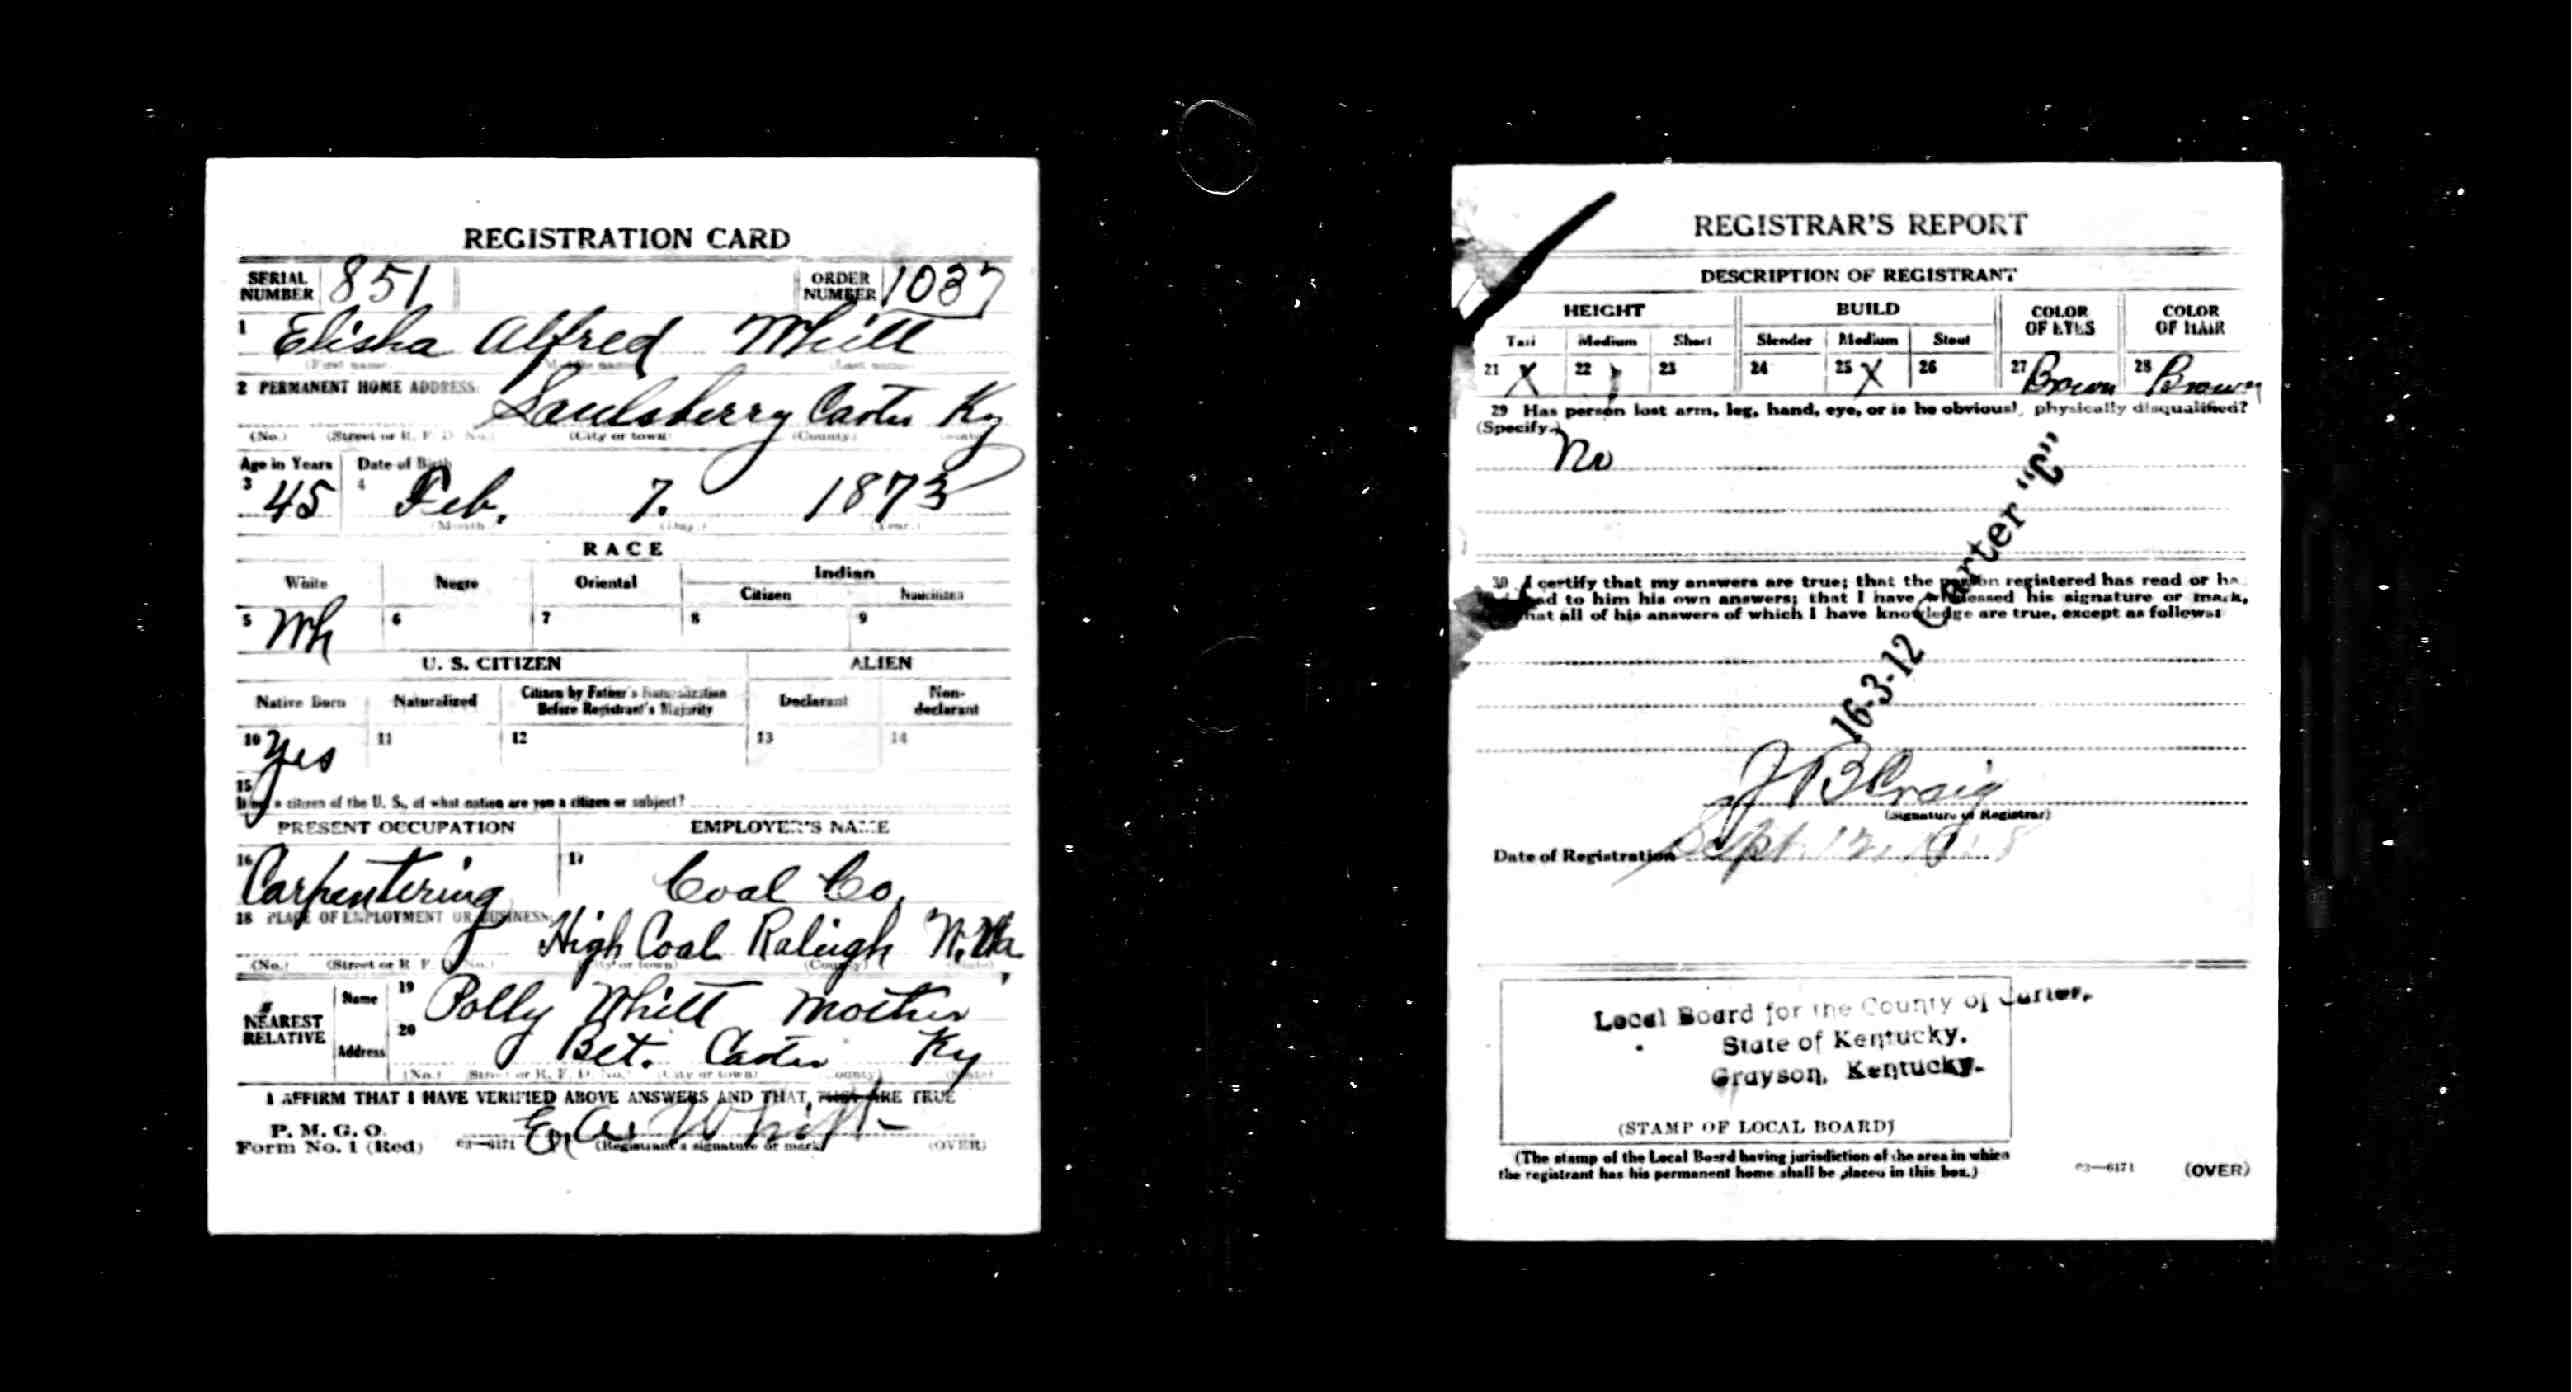 REGISTRATION CARD
SERIAL NUMBER 851 ORDER NUMBER 1037
1 Elisha Alfred Whitt
(First name) (Middle name) (Last name)
2 PERMANENT HOME ADDRESS:
Saulsberry Carter Ky
(No.) (Street or R. F. D. No.) (City or town) (County) (State)
Age in Years Date of Birth
3 45 4 Feb. 7. 1873
(Month) (Day) (Year)
RACE
White Negro Oriental Indian
Citizen Noncitizen
5 Wh 6 7 8 9
U. S. CITIZEN ALIEN
Native Born Naturalized Citizen by Father's Naturalization Before Registrant's Majority Declarant Non-declarant
10 Yes 11 12 13 14
15
a citizen of the U. S., of what nation are you a citizen or subject?
PRESENT OCCUPATION EMPLOYER'S NAME
16 Carpentering 17 Coal Co.
18 PLACE OF EMPLOYMENT OR BUSINESS:
High Coal Raleigh W. Va.
(No.) (Street or R. F. D. No.) (City or town) (County) (State)
NEAREST RELATIVE
Name 19 Polly Whitt Mother
Address 20 Bet. Carter Ky
(No.) (Street or R. F. D. No.) (City or town) (County) (State)
I AFFIRM THAT I HAVE VERIFIED ABOVE ANSWERS AND THAT THEY ARE TRUE
P. M. G. O.
Form No. 1 (Red) 03—6171 E. A. Whitt (Registrant's signature or mark) (OVER)
REGISTRAR'S REPORT
DESCRIPTION OF REGISTRANT
HEIGHT BUILD COLOR OF EYES COLOR OF HAIR
Tall Medium Short Slender Medium Stout
21 X 22 23 24 25 X 26 27 Brown 28 Brown
29 Has person lost arm, leg, hand, eye, or is he obviously physically disqualified?
(Specify.)
No
30 I certify that my answers are true; that the person registered has read or has
read to him his own answers; that I have witnessed his signature or mark,
that all of his answers of which I have knowledge are true, except as follows:
16-3-12 Carter "C"
J B Craig
(Signature of Registrar)
Date of Registration Sept. 12, 1918
Local Board for the County of Carter,
State of Kentucky.
Grayson, Kentucky.
(STAMP OF LOCAL BOARD)
(The stamp of the Local Board having jurisdiction of the area in which
the registrant has his permanent home shall be placed in this box.)
03—6171 (OVER)